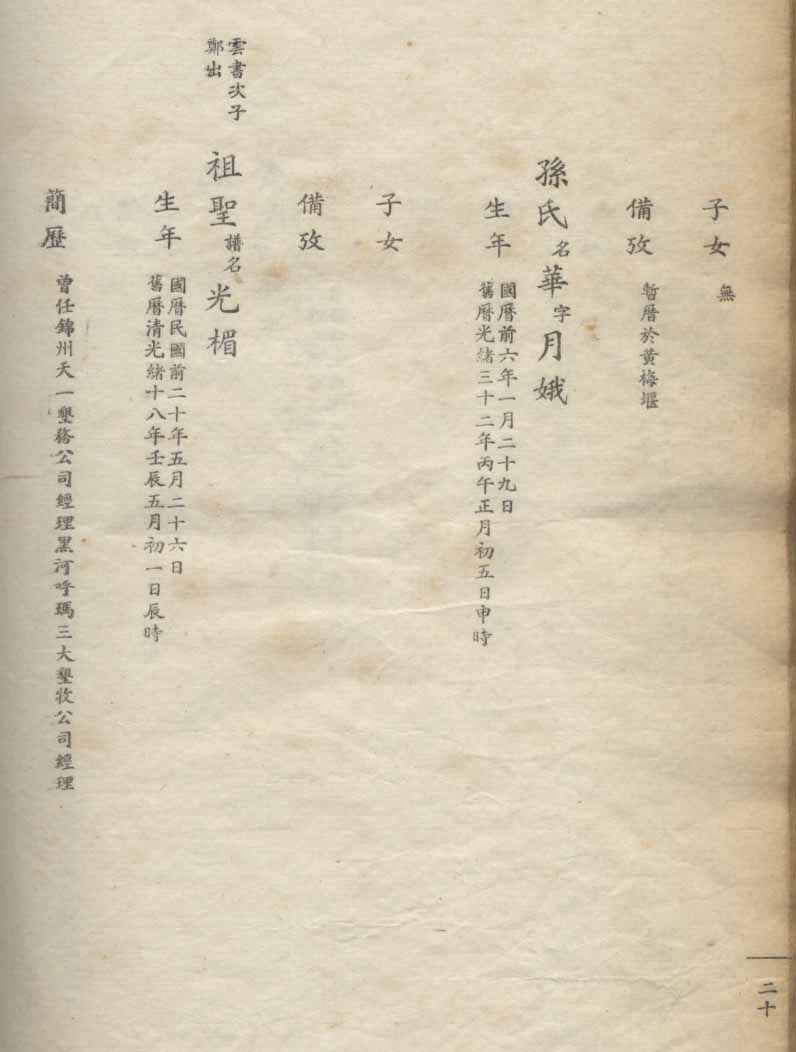 子女 無
備攷 暫厝於黃梅堰
孫氏名華字月娥
生年 國曆前六年一月二十九日
舊曆光緒三十二年丙午正月初五日申時
子女
備攷
雲書次子
鄭出
祖聖譜名光楣
生年 國曆民國前二十年五月二十六日
舊曆清光緒十八年壬辰五月初一日辰時
簡歷 曾任錦州天一墾務公司經理黑河呼瑪三大墾牧公司經理
二十